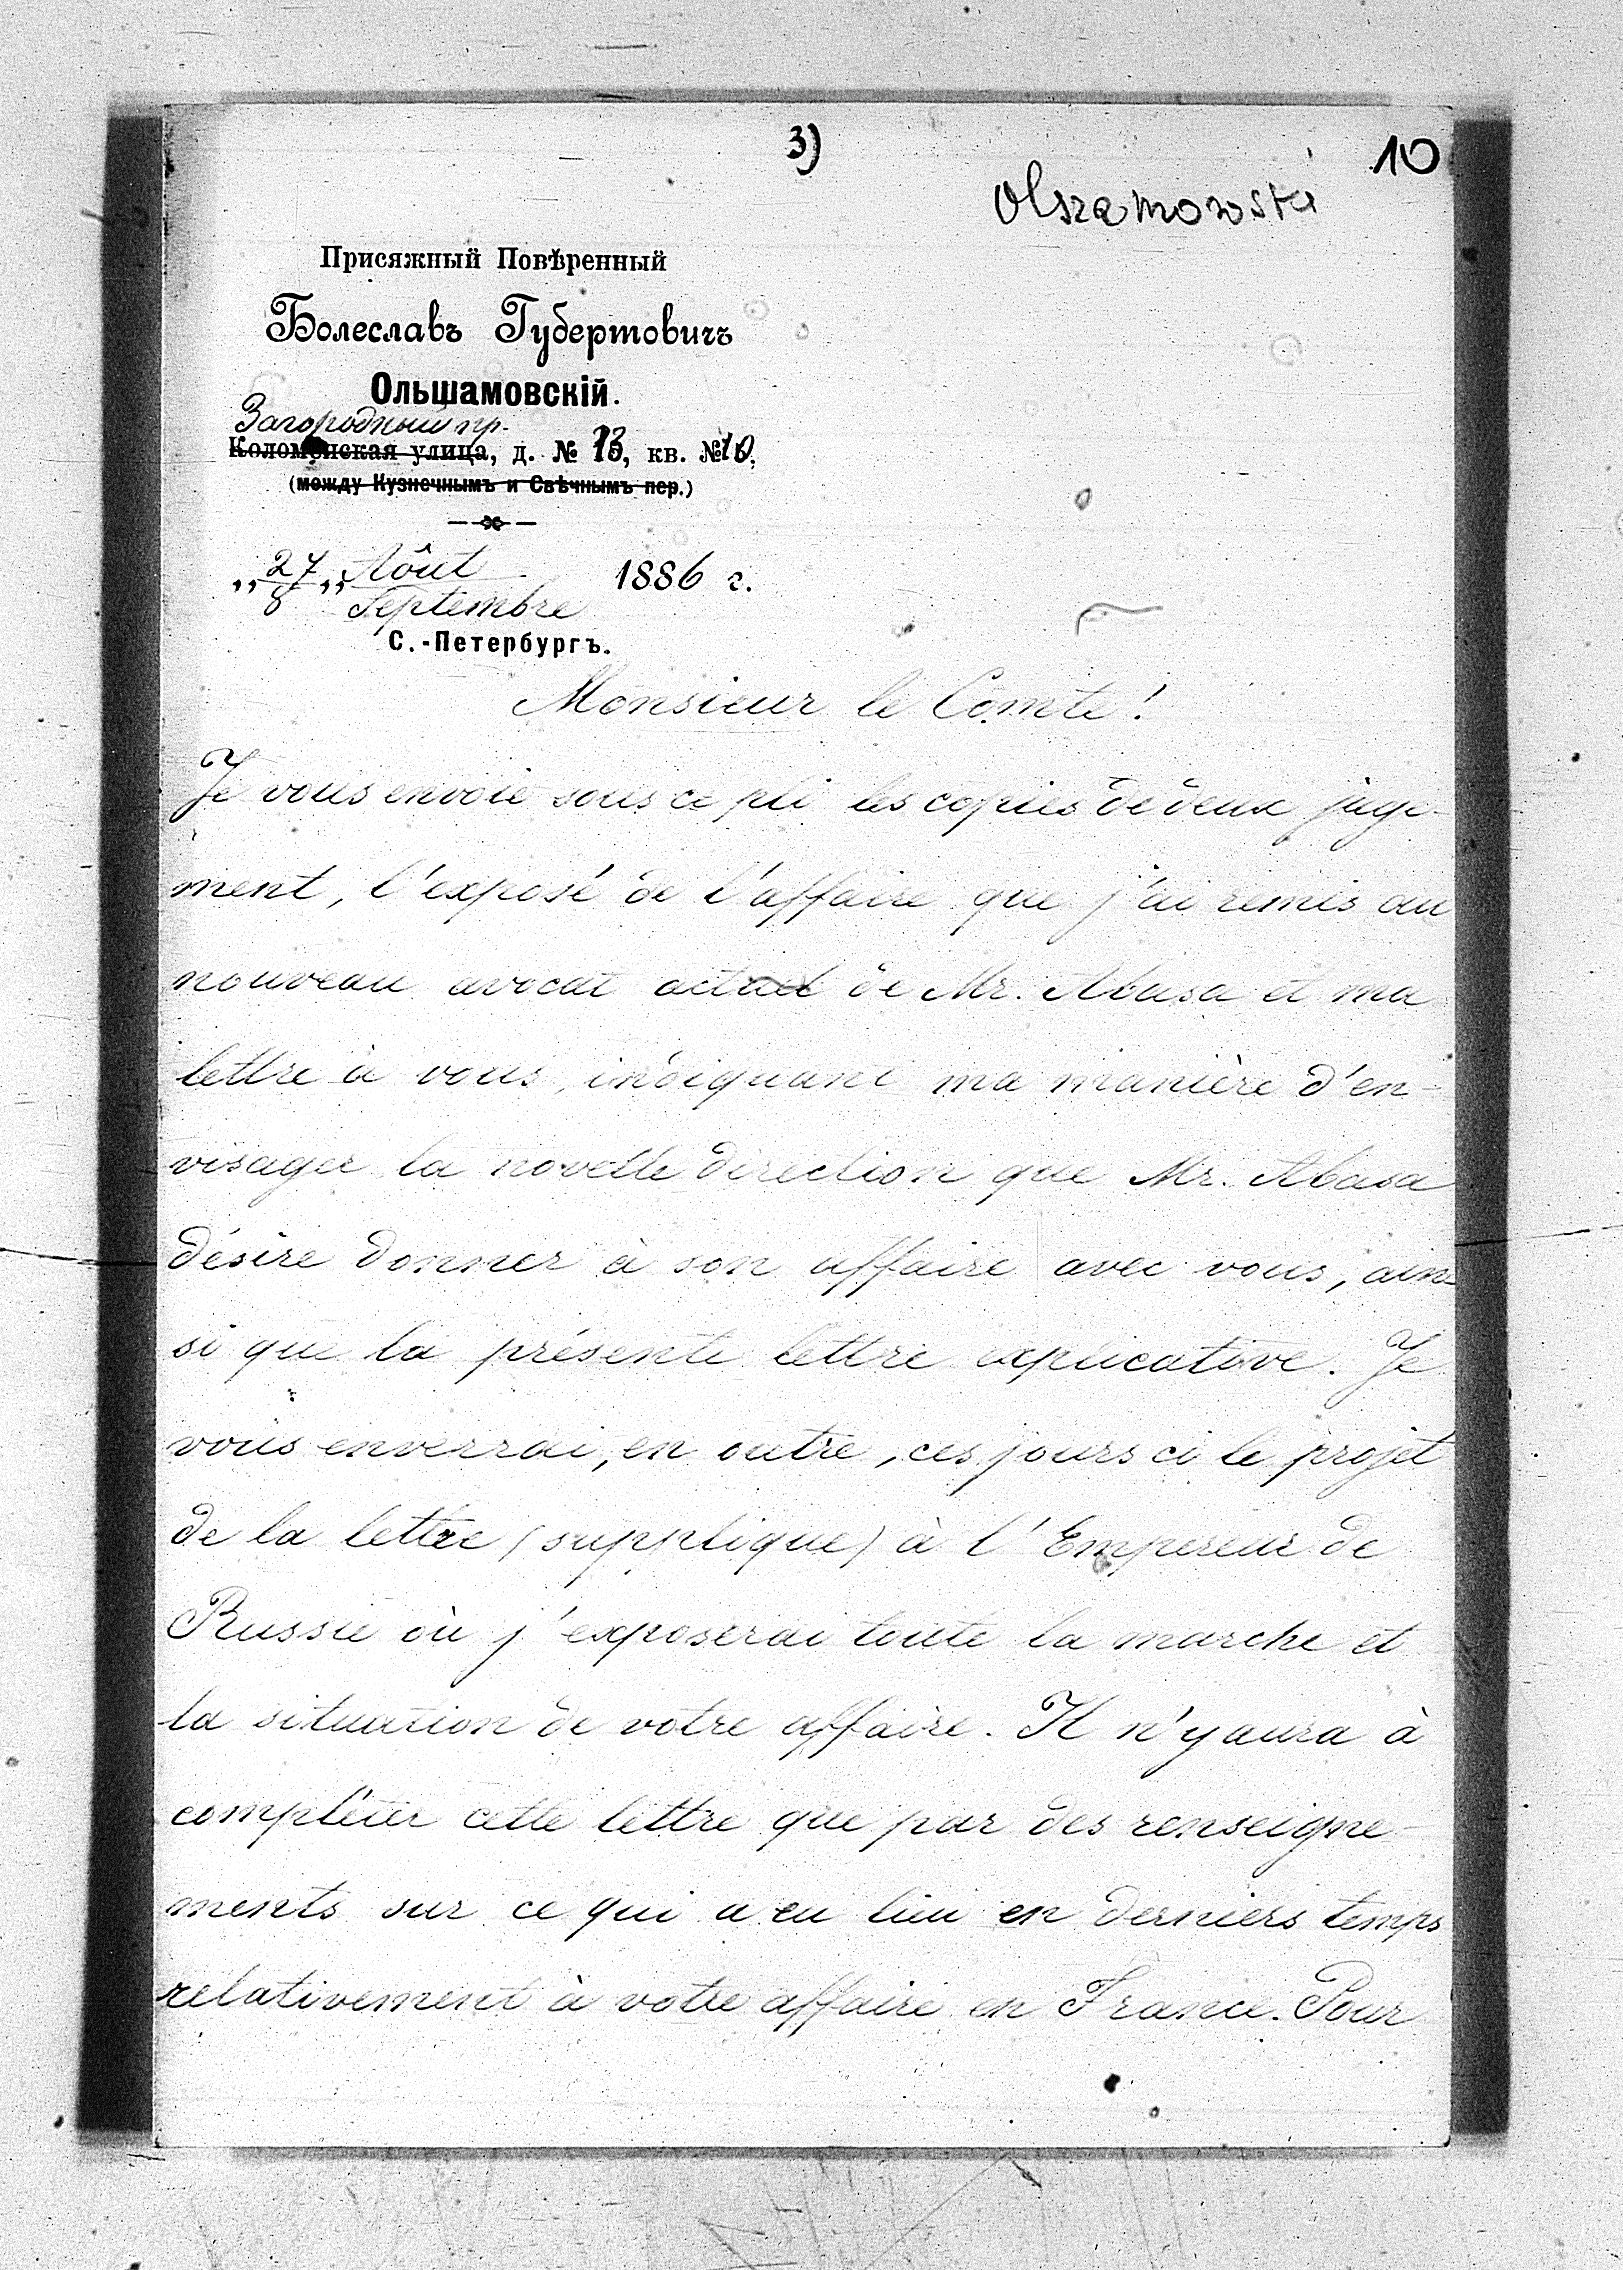 3)
10
Olszamowski
Присяжный Повѣренный
Болеславъ Губертовичъ
Ольшамовскій.
Загородный пр.
Коломенская улица, д. № 13, кв. № 10.
(между Кузнечнымъ и Свѣчнымъ пер.)
„27/8„ Aôut/Septembre 1886 г.
С.-Петербургъ.
Monsieur le Comte!
Je vous envoie sous ce pli les copies de deux juge-
ment, l'exposé de l'affaire que j'ai remis au
nouveau avocat actuel de Mr. Abasa et ma
lettre à vous, indiquant ma manière d'en-
visager la novelle direction que Mr. Abasa
désire donner à son affaire avec vous, ain-
si que la présente lettre explicative. Je
vous enverrai, en outre, ces jours ci le projet
de la lettre (supplique) à l'Empereur de
Russie où j'exposerai toute la marche et
la situation de votre affaire. Il n'y aura à
complêter cette lettre que par des renseigne-
ments sur ce qui a eu lieu en derniers temps
relativement à votre affaire en France. Pour